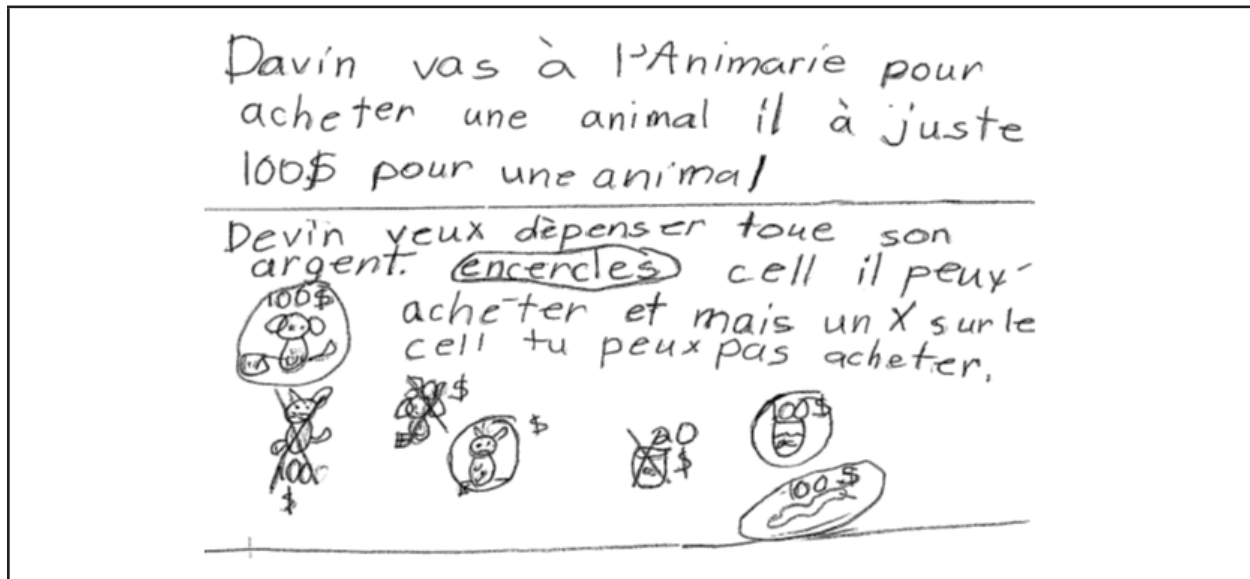 Davin vas à l'Animarie pour
acheter une animal il à juste
100$ pour une animal
Devin veux dèpenser toue son
argent. encercles cell il peux
100$
acheter et mais un X sur le
cell tu peux pas acheter.
$
$
20
$
100$
100$
$